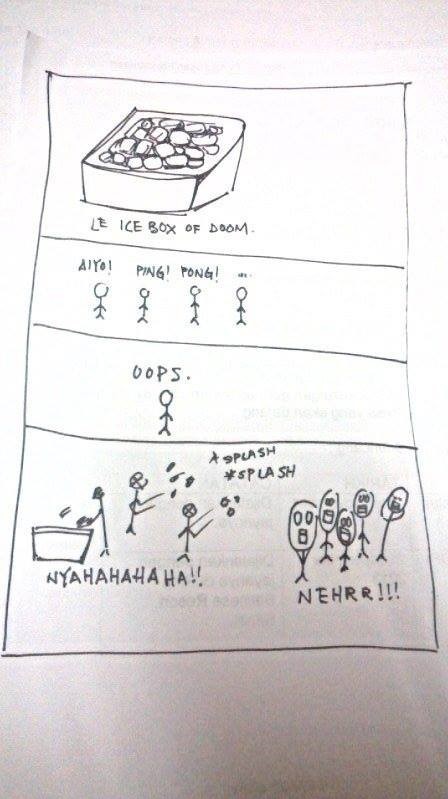 LE ICE BOX OF DOOM.
AIYO! PING! PONG! ...
OOPS.
*SPLASH
*SPLASH
NYAHAHAHAHA!!
NEHRR!!!